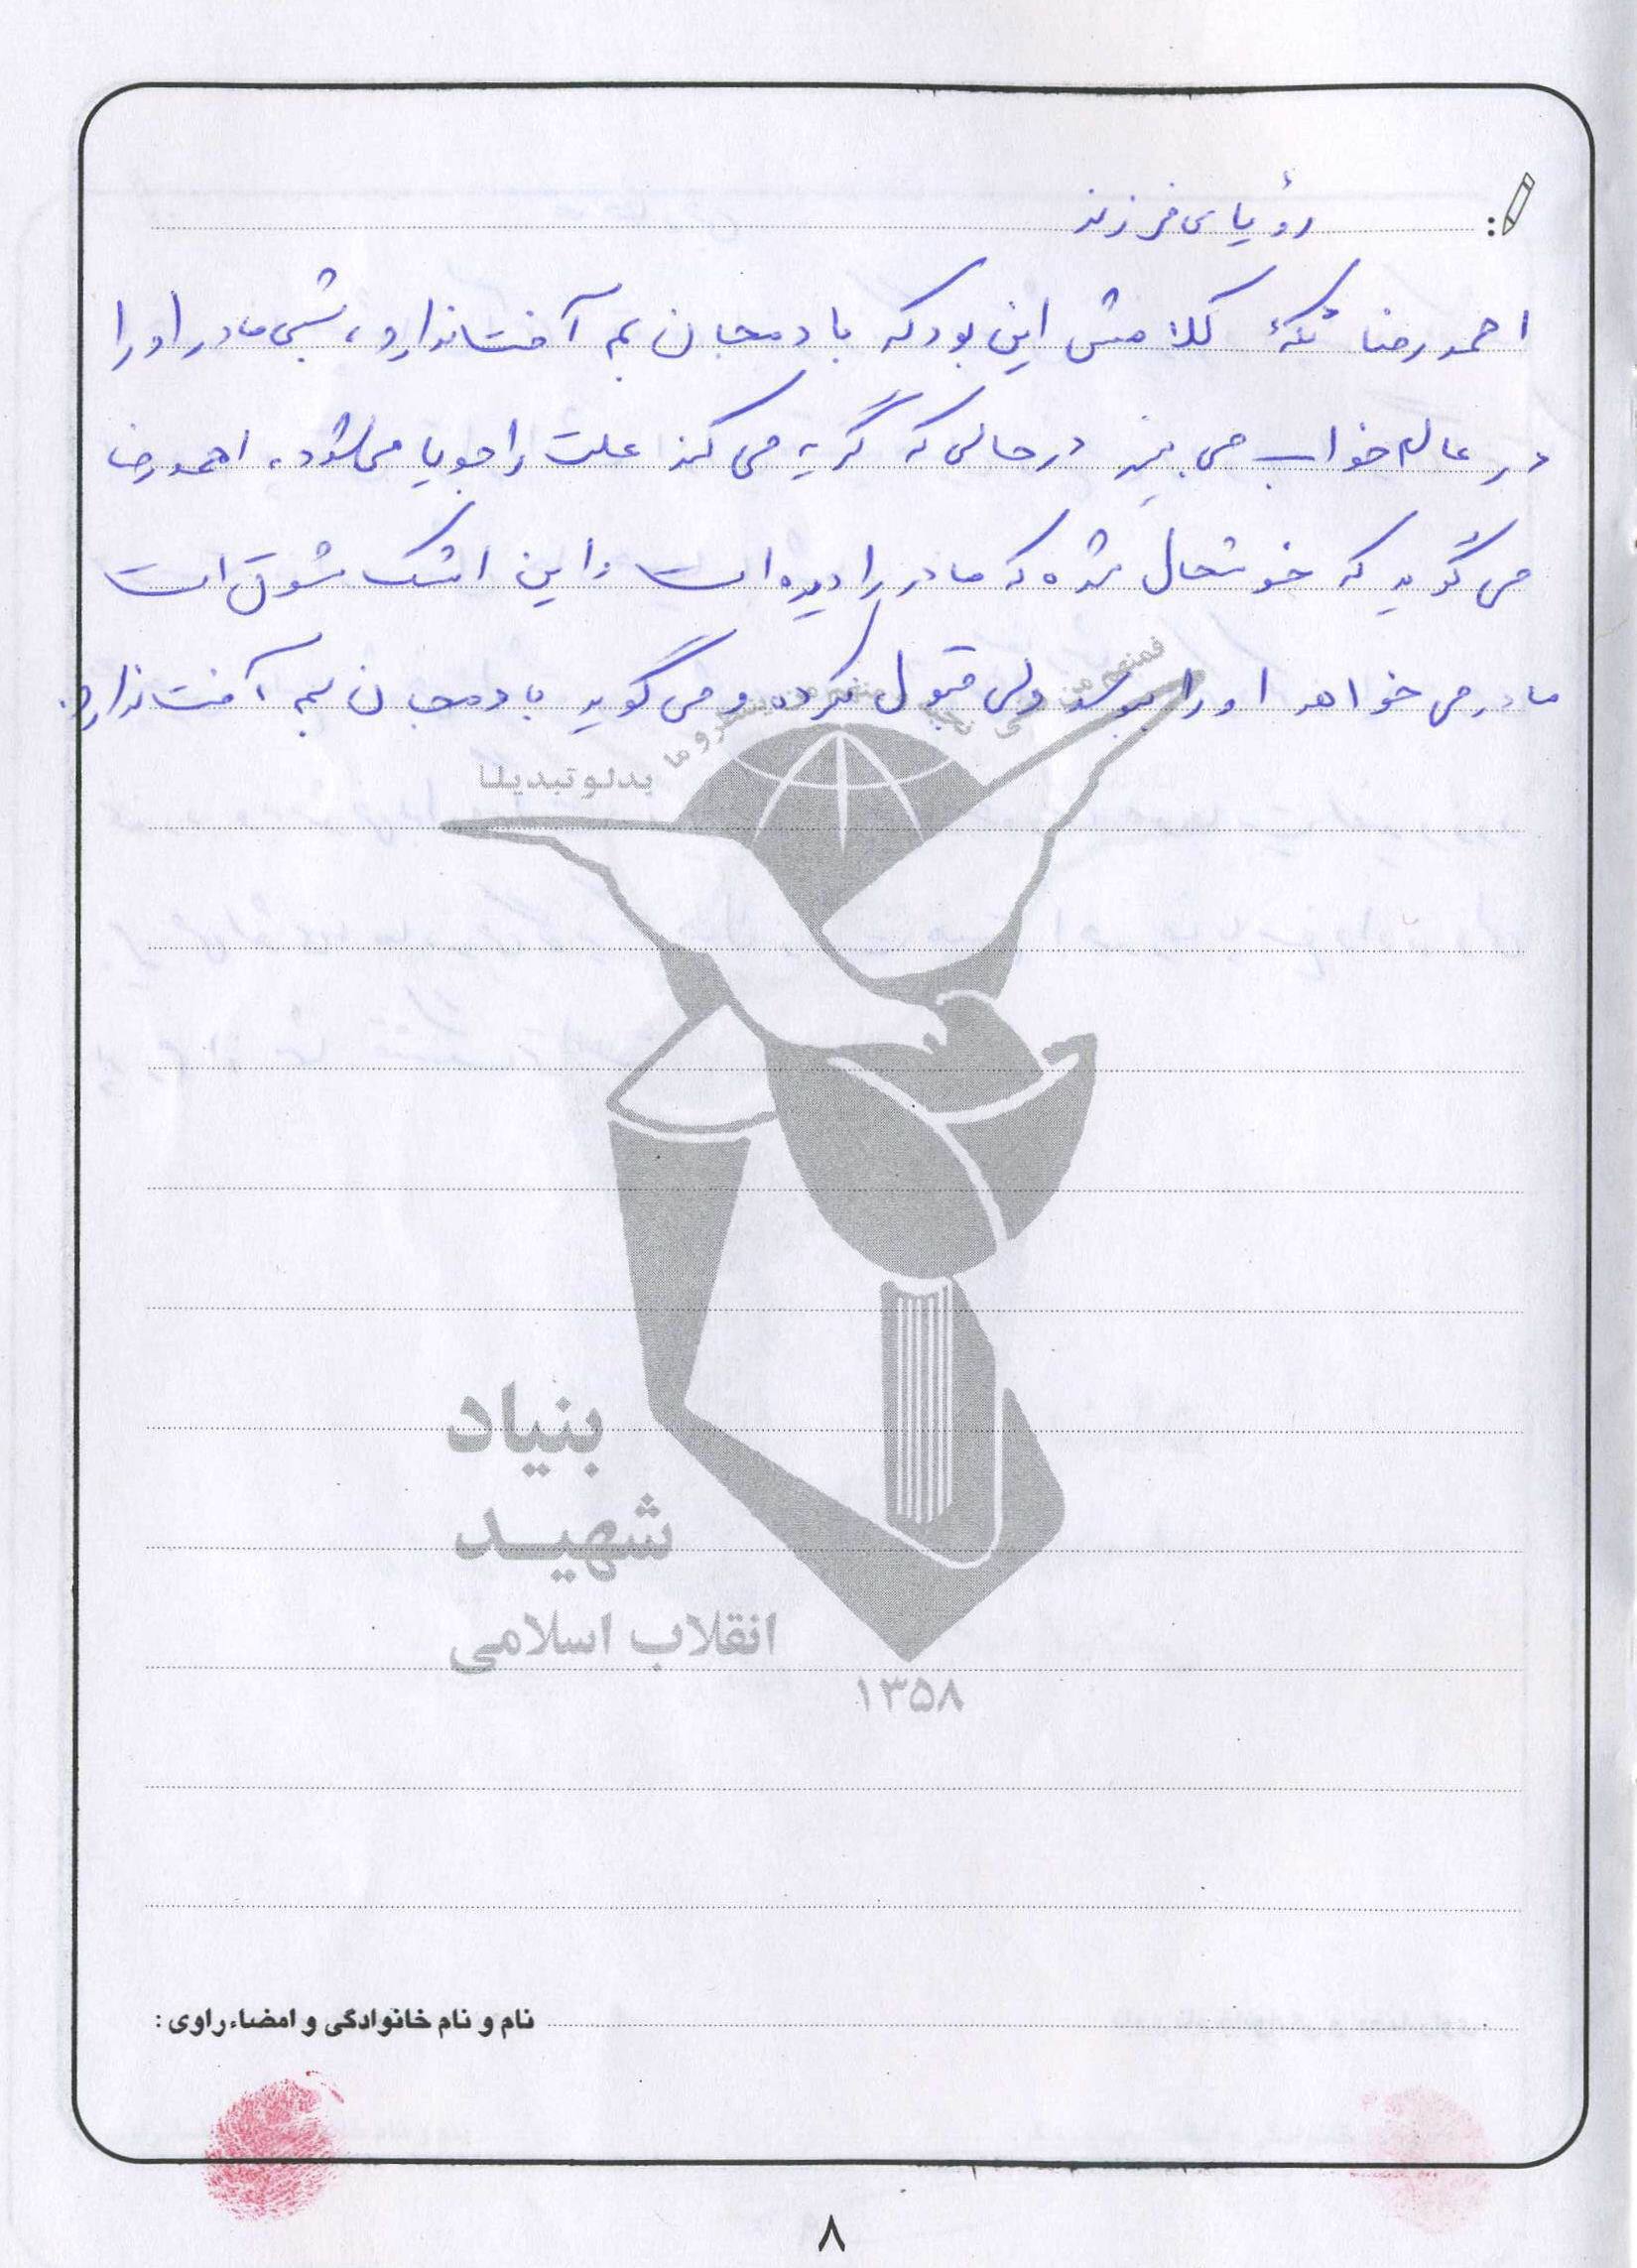 رؤیای فرزند
احمدرضا تکۀ کلامش این بود که بادمجان بم آفت ندارد، شبی مادر او را
در عالم خواب می بیند در حالی که گریه می کند علت را جویا می شود، احمدرضا
می گوید که خوشحال شده که مادر را دیده است و این اشک شوق است
مادر می خواهد او را ببوسد ولی قبول نکرده و می گوید بادمجان بم آفت ندارد.
بدلو تبدیلا
بنیاد
شهید
انقلاب اسلامی
۱۳۵۸
نام و نام خانوادگی و امضاء راوی :
۸